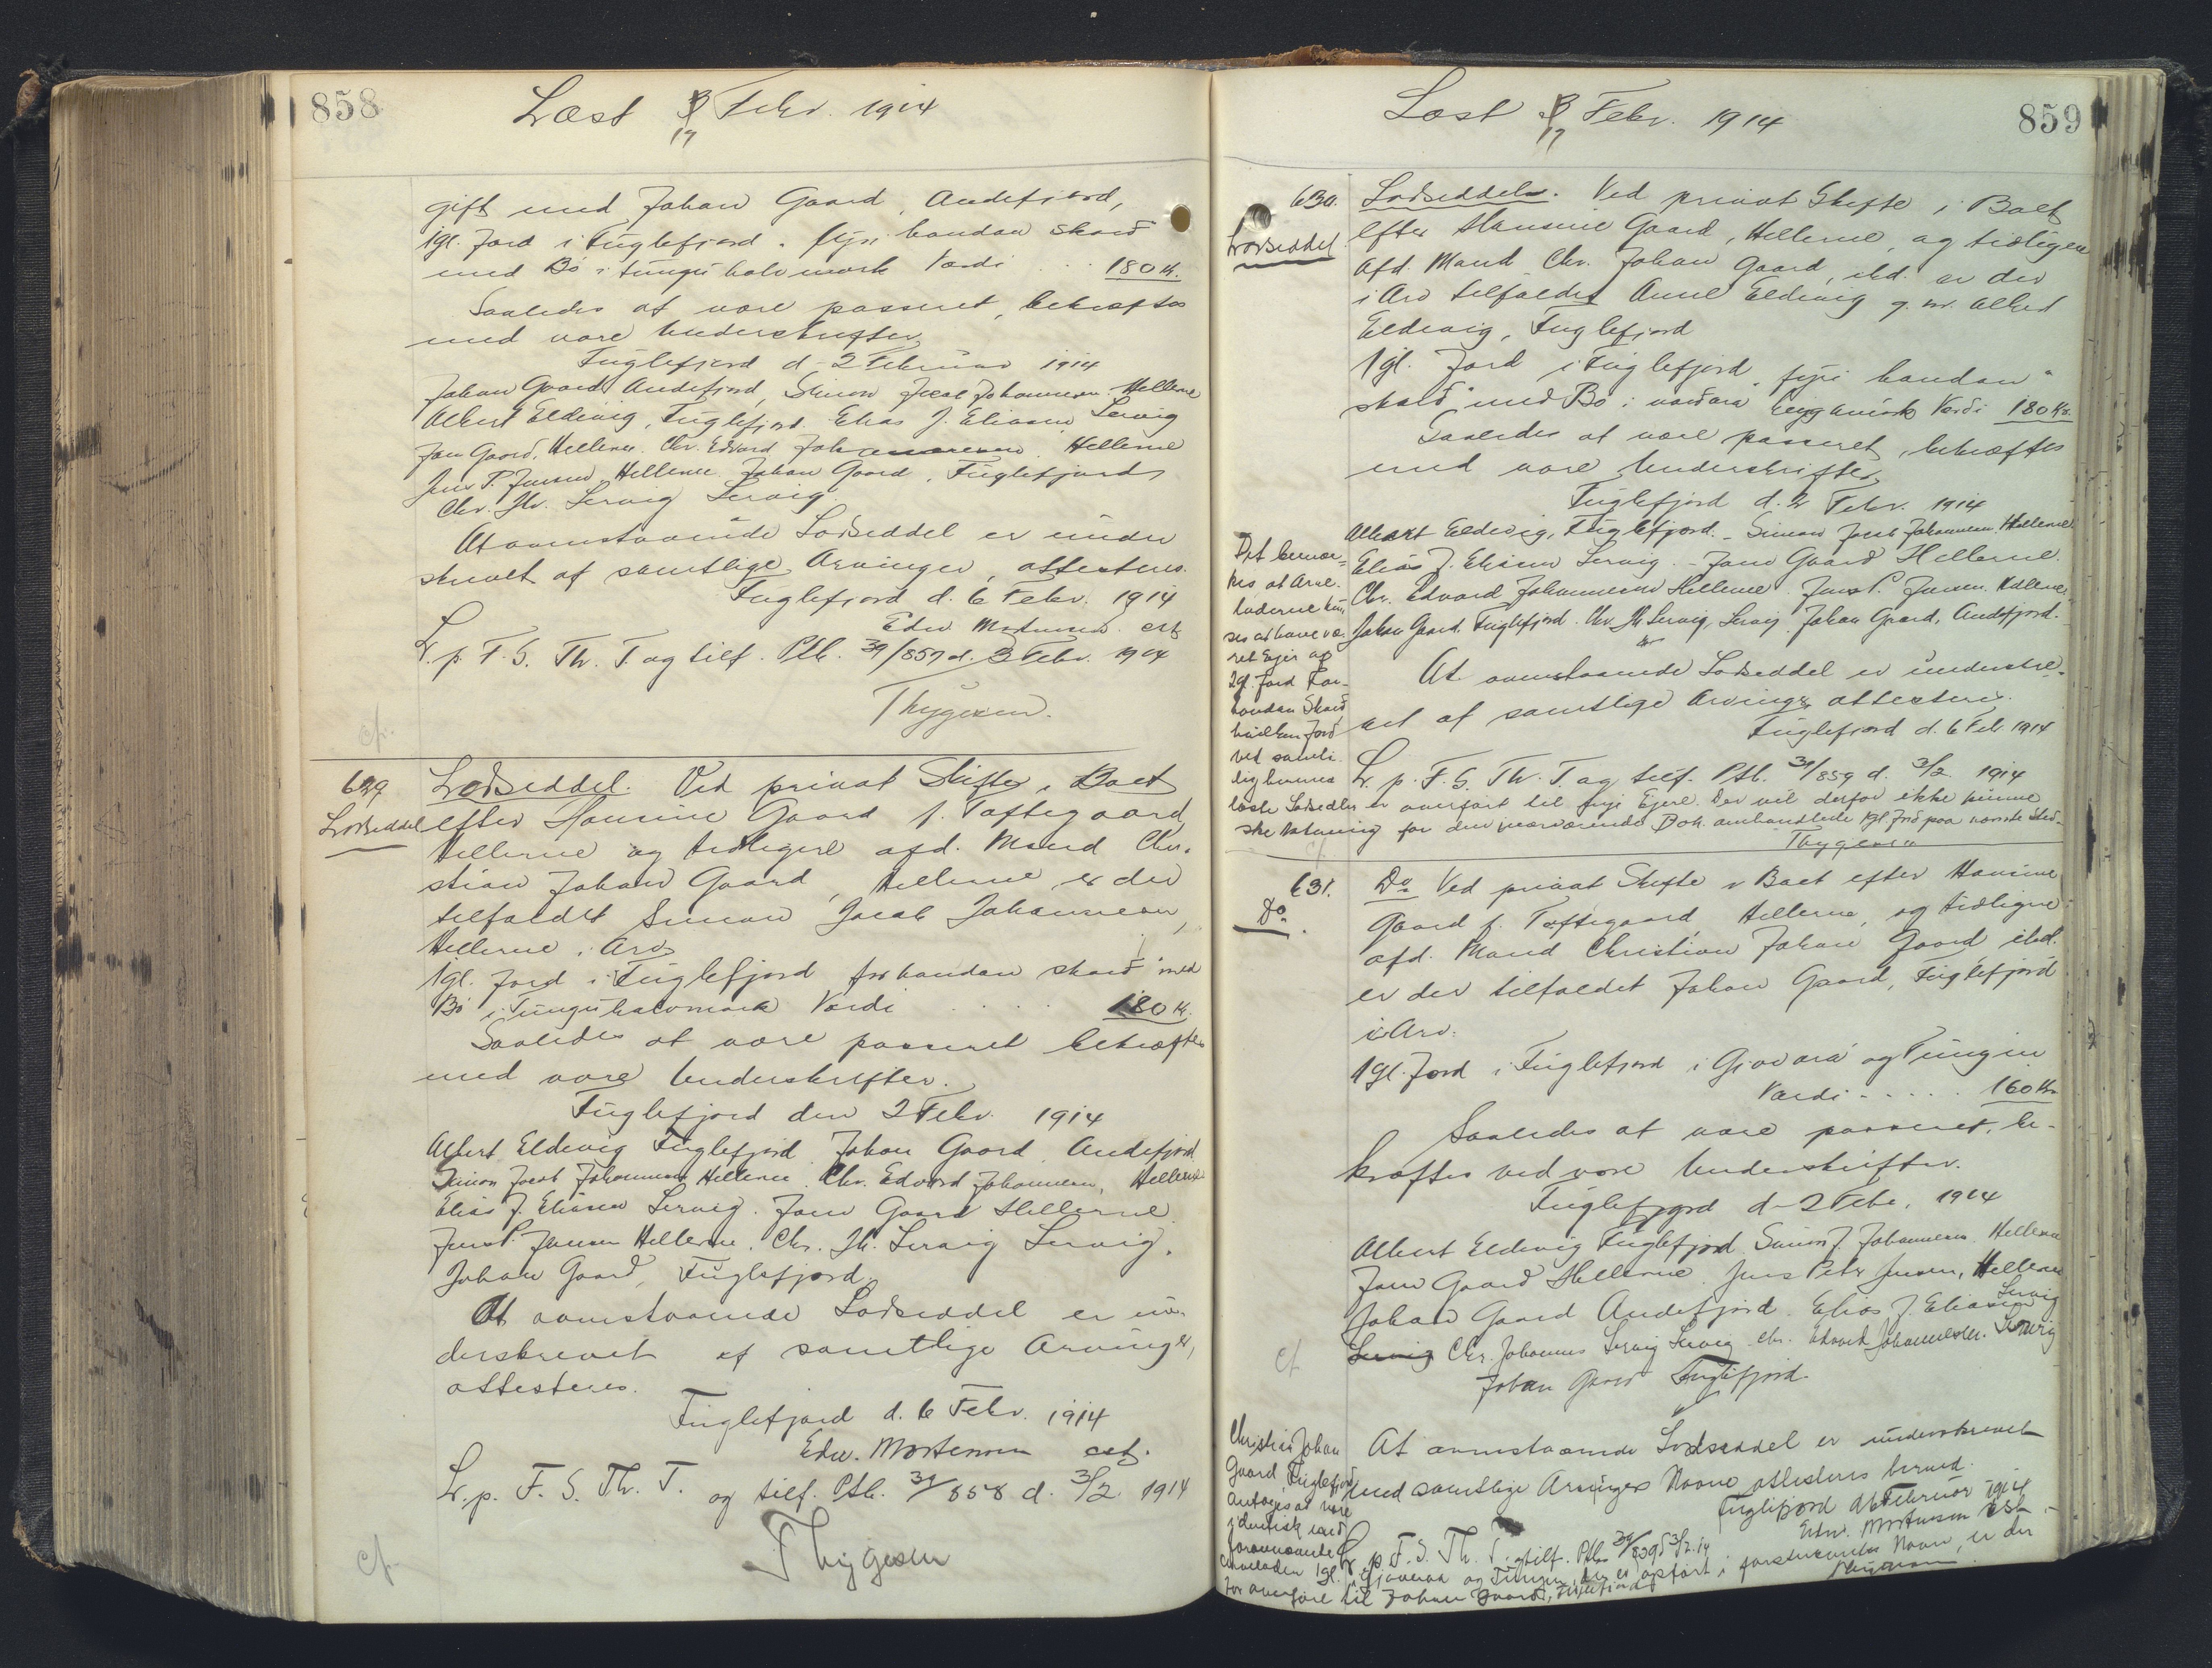 858
Læst 3/17 Febr. 1914
gift med Johan Gaard, Andefjord,
1gl. Jord i Fuglefjord. fyri handan Skard
med Bö i Tungu halvmork Værdi . . . 180 Kr.
Saaledes at være passeret, bekræftes
med vore Underskrifter.
Fuglefjord d. 2 Februar 1914
Johan Gaard Andefjord, Simon Jacob Johannesen Hellerne
Albert Eldevig, Fuglefjord. Elias J. Eliasen Lervig
Jan Gaard, Hellerne. Chr. Edvard Johannesen. Hellerne
Jens P. Jensen Hellerne. Johan Gaard, Fuglefjord
Chr. Jh. Lervig Lervig.
At ovenstaaende Lodseddel er under
skrevet af samtlige Arvinger, attesteres.
Fuglefjord d. 6 Febr. 1914
Edw. Mortensen cst.
L. p. F. S. Th. T. og tilf. Ptb. 39/857 d. 3 Febr. 1914
Thygesen.
cf.
629 Lodseddel. Ved privat Skifte i Boet
Lodseddel efter Hansine Gaard f. Toftegaard,
Hellerne og tidligere afd. Mand Chri-
stian Johan Gaard, Hellerne, er der
tilfaldet Simon Jacob Johannesen,
Hellerne i Arv
1gl. Jord i Fuglefjord for handan skard med
Bö i Tungu halvmork Værdi . . . . 180 Kr.
Saaledes at være passeret bekræftes
med vore Underskrifter.
Fuglefjord den 2 Febr. 1914
Albert Eldevig Fuglefjord. Johan Gaard. Andefjord
Simon Jacob Johannesen Hellerne. Chr. Edvard Johannesen, Hellerne
Elias J. Eliasen Lervig. Jan Gaard Hellerne.
Jens P. Jensen Hellerne. Chr. Jh. Lervig Lervig.
Johan Gaard, Fuglefjord
At ovenstaaende Lodseddel er un-
derskrevet af samtlige Arvinger,
attesteres.
Fuglefjord d. 6 Febr. 1914
Edw. Mortensen cst.
L. p. F. S. Th. T. og tilf. Ptb. 39/858 d. 3/2 1914
Thygesen
cf.
Læst 3/17 Febr. 1914
859
630. Lodseddel. Ved privat Skifte i Boet
Lodseddel. efter Hansine Gaard, Hellerne, og tidligere
afd. Mand Chr. Johan Gaard, ibd. er der
i Arv tilfaldet Anne Eldevig g. m. Albert
Eldevig, Fuglefjord
1gl. Jord i Fuglefjord "fyri handan
skard" med Bö i Værdi 180 Kr.
Saaledes at være passeret, bekræftes
med vore Underskrifter
Fuglefjord d. 2 Febr. 1914
Albert Eldevig, Fuglefjord. - Simon Jacob Johannesen Hellerne
Elias J. Eliasen Lervig. - Jan Gaard Hellerne.
Chr. Edvard Johannesen Hellerne. Jens P. Jensen. Hellerne
Johan Gaard. Fuglefjord. Chr. Jh. Lervig, Lervig. Johan Gaard, Andefjord.
At ovenstaaende Lodseddel er underskre-
vet af samtlige Arvinger attesteres.
Fuglefjord d. 6 Feb. 1914
L. p. F. S. Th. T. og tilf. Ptb. 39/859 d. 3/2 1914
Det bemær-
kes at Arve-
laderne kun
ses at have væ-
ret Ejer af
2gl. Jord For-
handan Skard
hvilken Jord
ved samti-
dig hermed
læste Lodsedler er overført til nye Ejere. Der vil derfor ikke kunne
ske Notering for den nærværende Dok. omhandlede 1gl. Jord paa nævnte Sted.
Thygesen
631. Do Ved privat Skifte i Boet efter Hansine
Do. Gaard f. Toftegaard, Hellerne, og tidligere
afd. Mand Christian Johan Gaard ibd.
er der tilfaldet Johan Gaard, Fuglefjord
i Arv.
1gl. Jord i Fuglefjord i Gjovará og Tungin
Værdi . . . . . 160 Kr.
Saaledes at være passeret, be-
kræftes ved vore Underskrifter.
Fuglefjord d. 2 Febr. 1914
Albert Eldevig Fuglefjord Simon J. Johannesen Hellerne
Jan Gaard Hellerne. Jens Peter Jensen, Hellerne
Johan Gaard Andefjord. Elias J. Eliasen Lervig
Lervig Chr. Johannes Lervig Lervig Chr. Edvard Johannesen. Lervig
Johan Gaard Fuglefjord.
cf
At ovenstaaende Lodseddel er underskrevet
med samtlige Arvinges Navne attesteres herved.
Fuglefjord d. 6 Februar 1914
Edw. Mortensen cst.
L. p. F. S. Th. T. og tilf. Ptb. 39/859 d. 3/2 14
Christian Johan
Gaard, Fuglefjord
antages at være
identisk med
forannævnte
Arvelader. 1gl. i Gjoveraa og Tungen, der er opført i førstnævntes Navn, er der
for overført til Johan Gaard, Fuglefjord
Thygesen